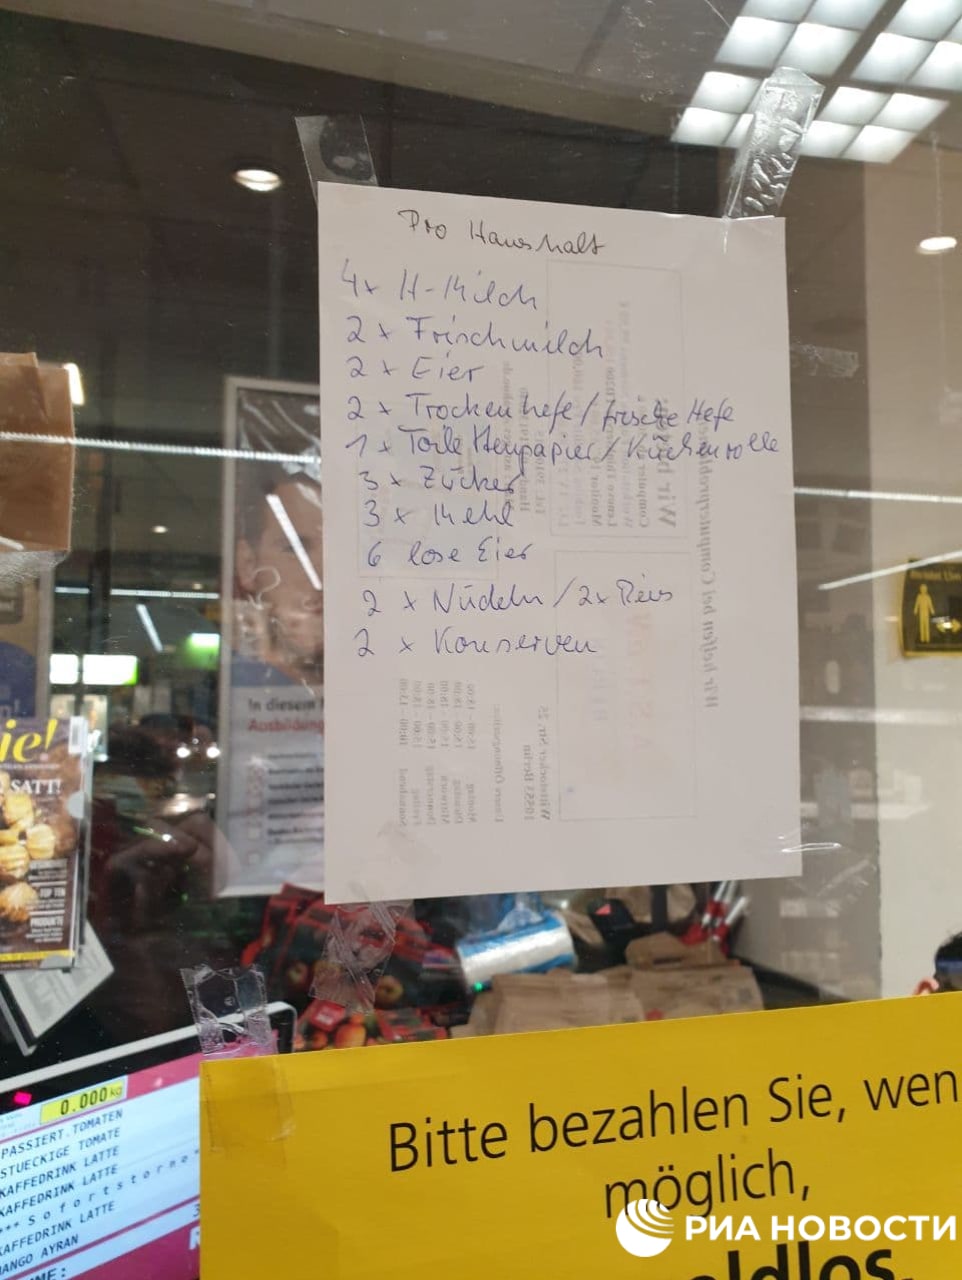 Pro Haushalt
4x H-Milch
2 x Frischmilch
2 x Eier
2 x Trockenhefe/frische Hefe
1 x Toilettenpapier/Küchenrolle
3 x Zucker
3 x Mehl
6 lose Eier
2 x Nudeln/2x Reis
2 x Konserven
Wir helfen bei Computerproblemen
10553 Berlin
ie!
SATT!
TOP TEN
PRODUKTE
In diesem
Ausbildung
0.000 kg
PASSIERT.TOMATEN
STUECKIGE TOMATE
KAFFEDRINK LATTE
KAFFEDRINK LATTE
*** Sofortstorno
KAFFEDRINK LATTE
MANGO AYRAN
Bitte bezahlen Sie, wen
möglich,
ldlos
РИА НОВОСТИ